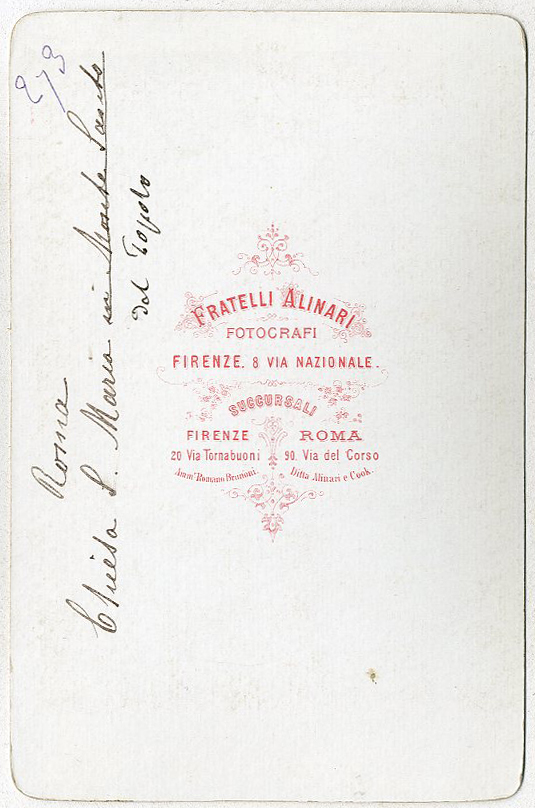 273
Roma
Chiesa S. Maria in Monte Santo
del Popolo
FRATELLI ALINARI
FOTOGRAFI
FIRENZE. 8 VIA NAZIONALE.
SUCCURSALI
FIRENZE ROMA
20 Via Tornabuoni 90. Via del Corso
Romano Brunoni. Ditta Alinari e Cook.